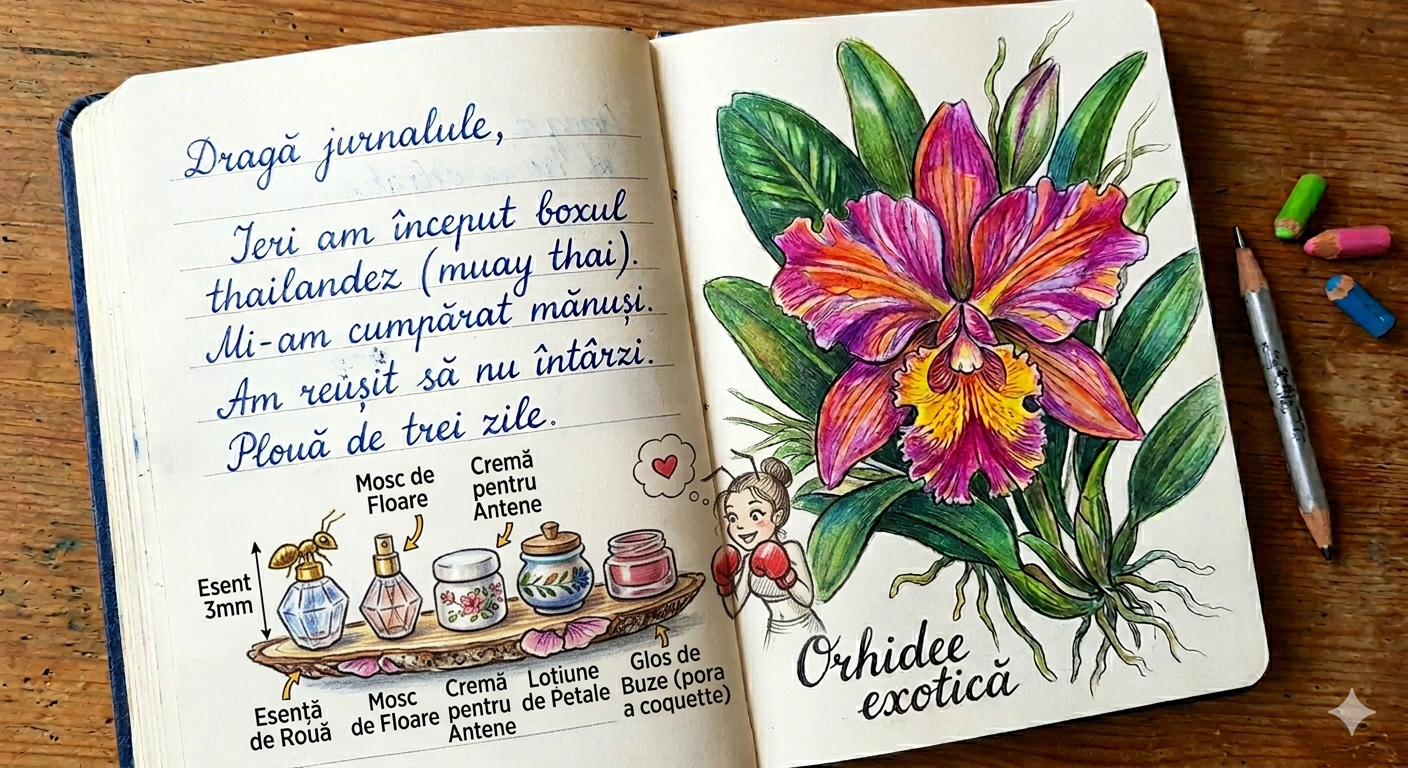 Dragă jurnalule,
Ieri am început boxul
thailandez (muay thai).
Mi-am cumpărat mănuși.
Am reușit să nu întârzi.
Plouă de trei zile.
Mosc de
Floare
Cremă
pentru
Antene
Esent
3mm
Esență
de Rouă
Mosc
de Floare
Cremă
pentru
Antene
Loțiune
de Petale
Glos de
Buze (pora
a coquette)
Orhidee
exotică